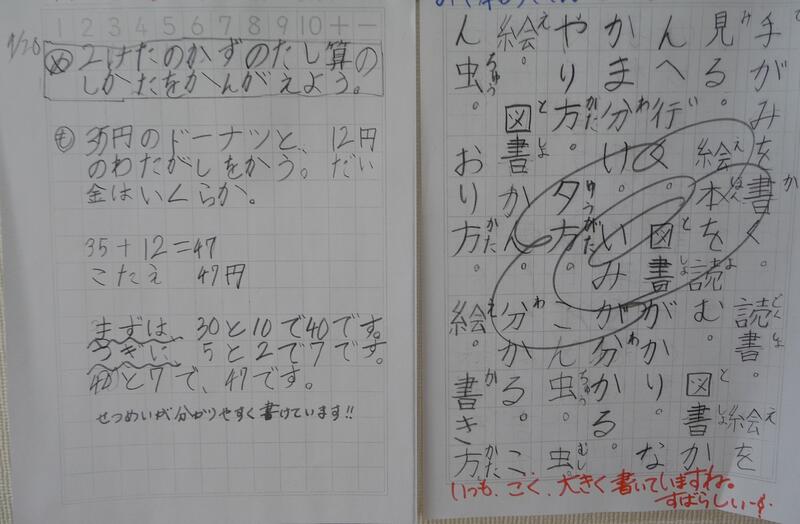 1 2 3 4 5 6 7 8 9 10 + −
め 2けたのかずのたし算の
しかたをかんがえよう。
も 35円のドーナツと、12円
のわたがしをかう。だい
金はいくらか。
35+12=47
こたえ 47円
まずは、30と10で40です。
つぎに、5と2で7です。
40と7で、47です。
せつめいが分かりやすく書けています!!
手がみを書く。読書。絵を
見る。絵本を読む。図書か
んへ行く。図書がかり。な
かま分け。いみが分かる。
やり方。夕方。こん虫。虫。
絵。図書かん。分かる。こ
ん虫。おり方。絵。書き方
いつも、こく、大きく書いていますね。
すばらしい